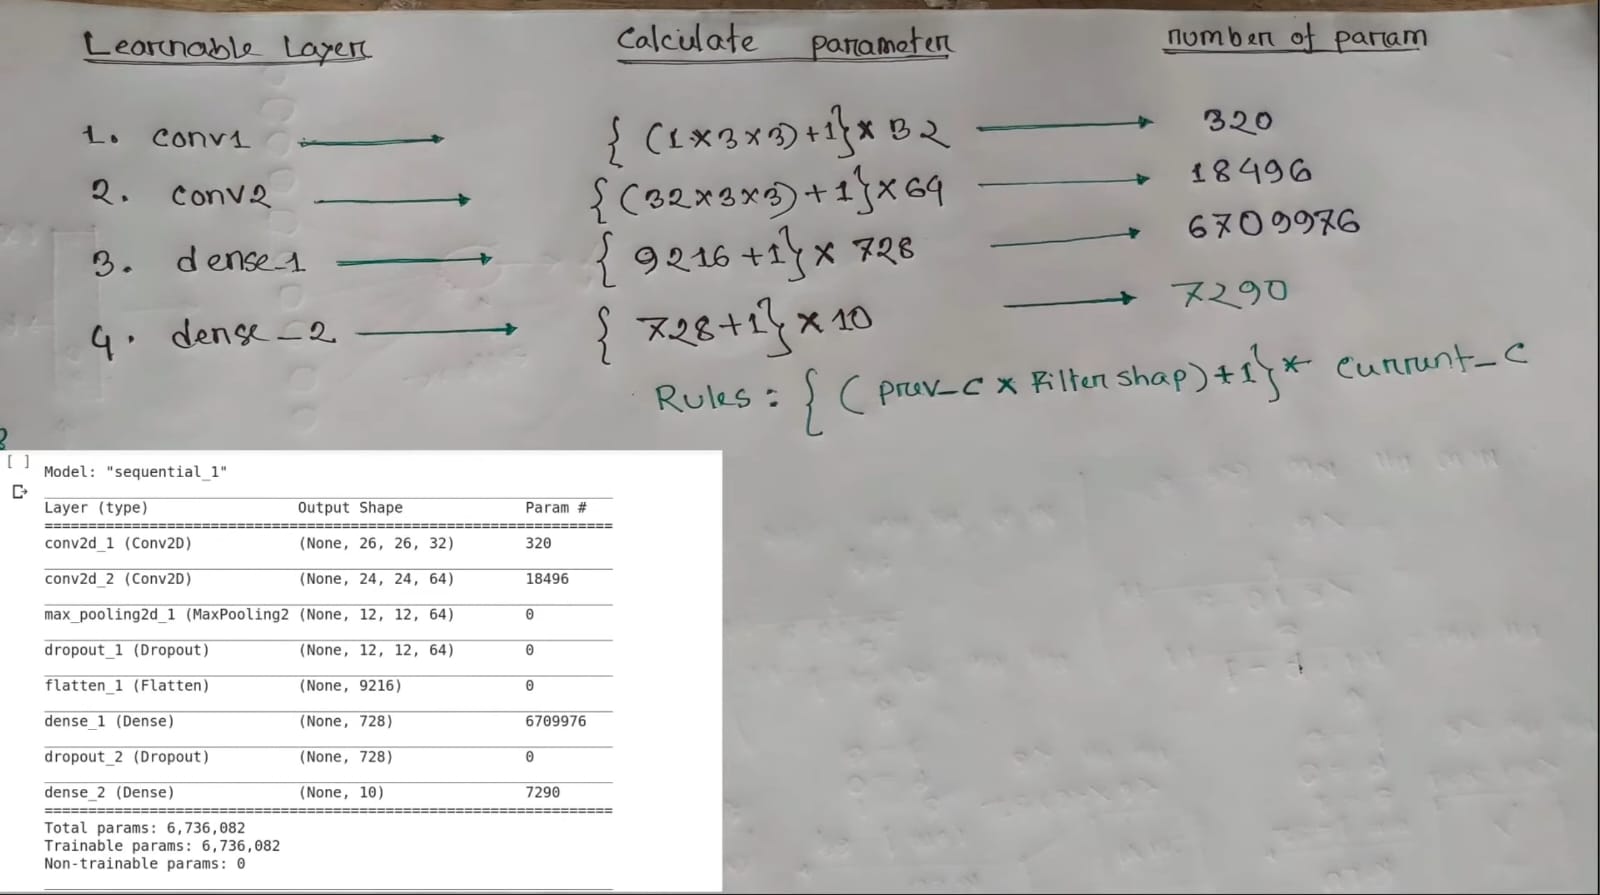 Learnable Layer calculate parameter number of param
1. conv1 { (1×3×3)+1}× 32 320
2. conv2 { (32×3×3)+1}×64 18496
3. dense-1 { 9216+1}× 728 6709976
4. dense-2 { 728+1}×10 7290
Rules: { ( prev-c × Filter shap)+1}* currunt-c
[ ]
Model: "sequential_1"
Layer (type) Output Shape Param #
=================================================================
conv2d_1 (Conv2D) (None, 26, 26, 32) 320
conv2d_2 (Conv2D) (None, 24, 24, 64) 18496
max_pooling2d_1 (MaxPooling2 (None, 12, 12, 64) 0
dropout_1 (Dropout) (None, 12, 12, 64) 0
flatten_1 (Flatten) (None, 9216) 0
dense_1 (Dense) (None, 728) 6709976
dropout_2 (Dropout) (None, 728) 0
dense_2 (Dense) (None, 10) 7290
=================================================================
Total params: 6,736,082
Trainable params: 6,736,082
Non-trainable params: 0